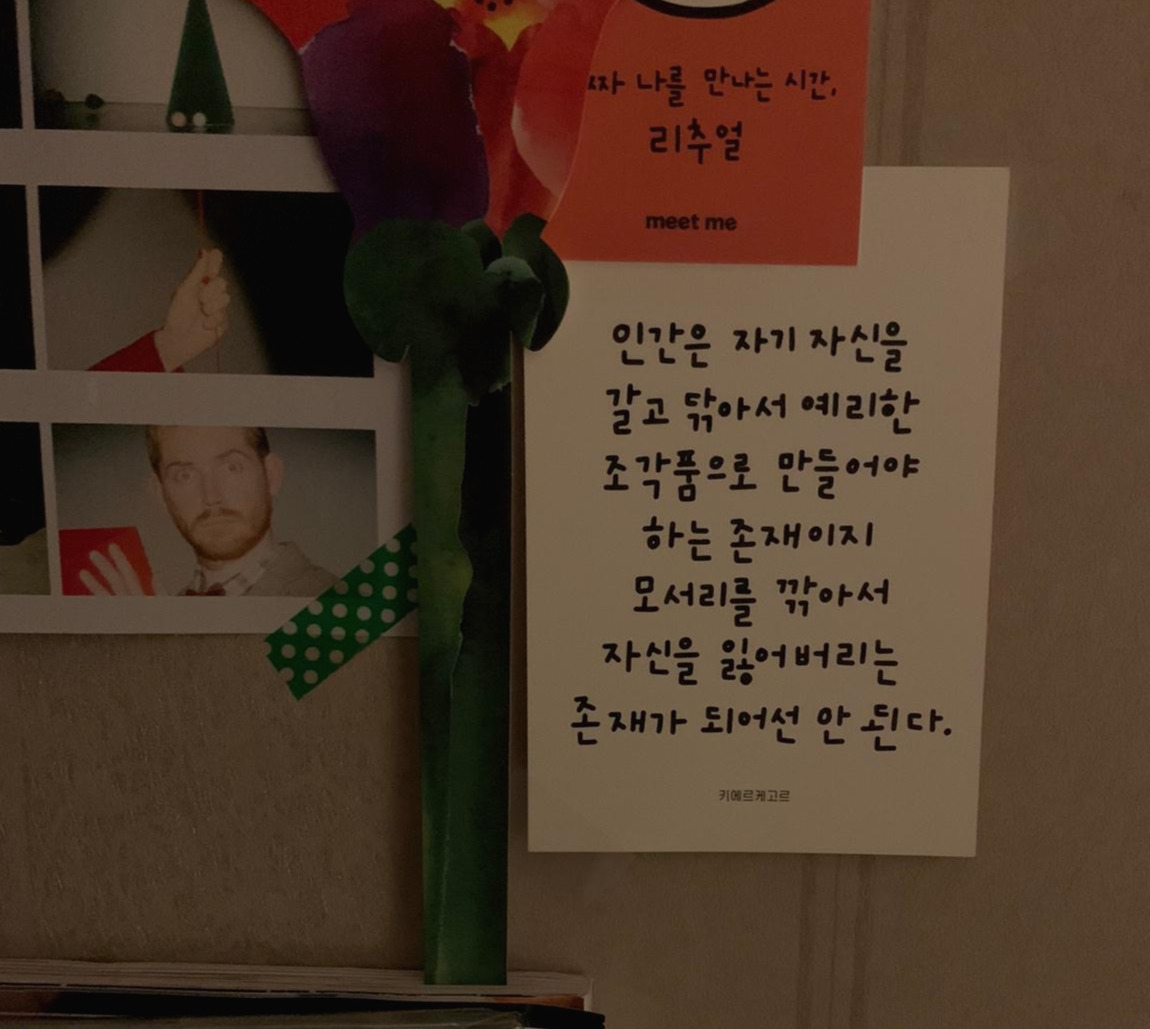 나를 만나는 시간,
리추얼
meet me
인간은 자기 자신을
갈고 닦아서 예리한
조각품으로 만들어야
하는 존재이지
모서리를 깎아서
자신을 잃어버리는
존재가 되어선 안 된다.
키에르케고르